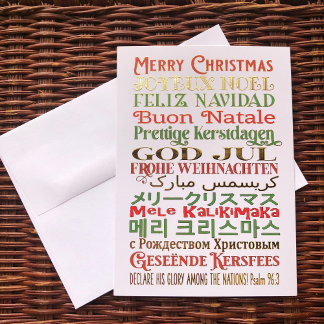 Merry Christmas
JOYEUX NOEL
FELIZ NAVIDAD
Buon Natale
Prettige Kerstdagen
GOD JUL
FROHE WEIHNACHTEN
كريسمس مبارک
メリークリスマス
Mele Kalikimaka
메리 크리스마스
с Рождеством Христовым
Geseënde Kersfees
DECLARE HIS GLORY AMONG THE NATIONS! Psalm 96:3